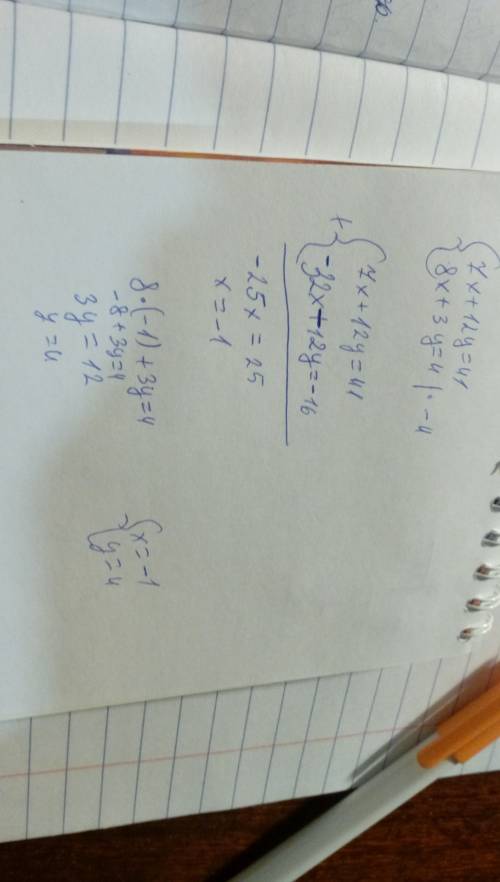 {7x+12y=41
{8x+3y=4 |·-4
+{7x+12y=41
{-32x-12y=-16
-25x=25
x=-1
8·(-1)+3y=4
-8+3y=4
3y=12
y=4
{x=-1
{y=4